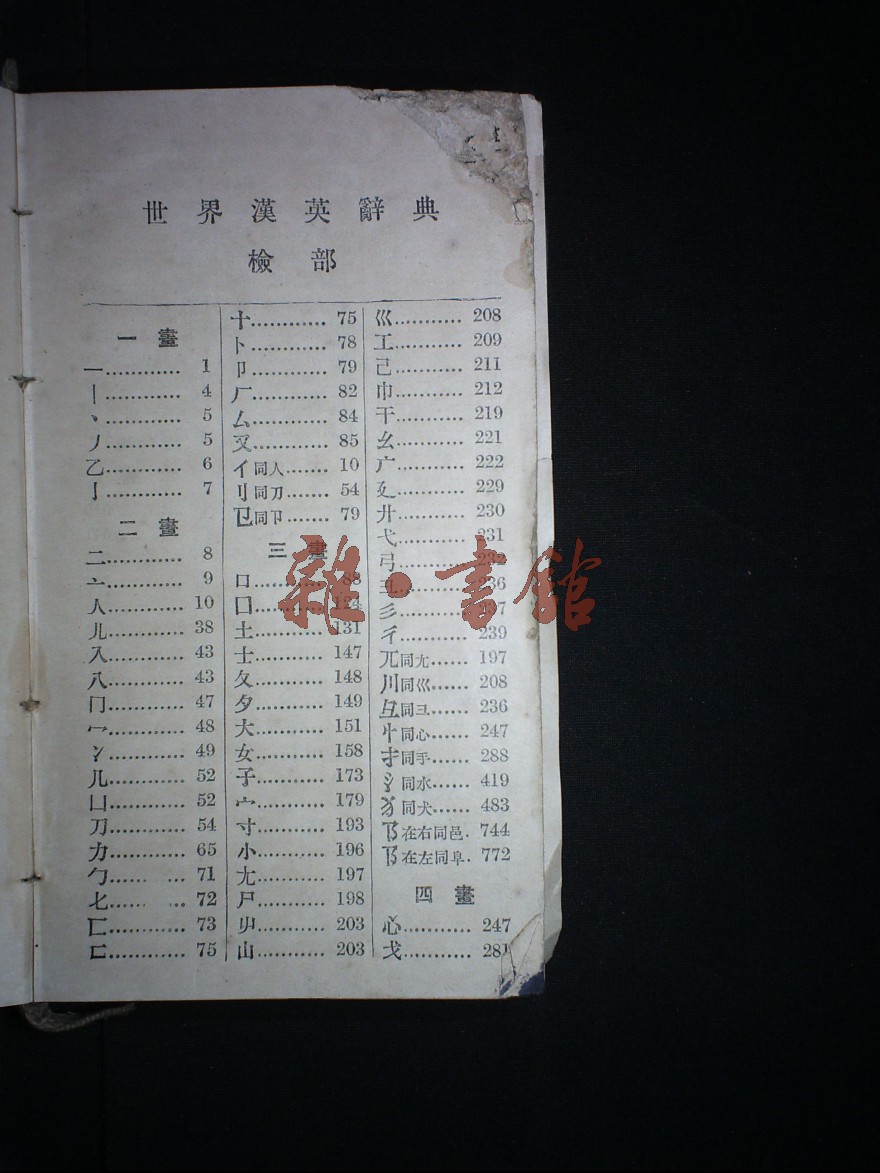 世界漢英辭典
檢部
一畫
一............ 1
丨............ 4
丶............ 5
丿............ 5
乙............ 6
亅............ 7
二畫
二............ 8
亠............ 9
人............ 10
儿............ 38
入............ 43
八............ 43
冂............ 47
冖............ 48
冫............ 49
几............ 52
凵............ 52
刀............ 54
力............ 65
勹............ 71
匕............ 72
匚............ 73
匸............ 75
十............ 75
卜............ 78
卩............ 79
厂............ 82
厶............ 84
又............ 85
亻同人....... 10
刂同刀....... 54
㔾同卩....... 79
三畫
口............ 88
囗............ 124
土............ 131
士............ 147
夂............ 148
夕............ 149
大............ 151
女............ 158
子............ 173
宀............ 179
寸............ 193
小............ 196
尢............ 197
尸............ 198
屮............ 203
山............ 203
巛............ 208
工............ 209
己............ 211
巾............ 212
干............ 219
幺............ 221
广............ 222
廴............ 229
廾............ 230
弋............ 231
弓............ 232
彐............ 236
彡............ 237
彳............ 239
兀同尢...... 197
川同巛...... 208
彑同彐...... 236
忄同心...... 247
扌同手...... 288
氵同水...... 419
犭同犬...... 483
阝在右同邑. 744
阝在左同阜. 772
四畫
心............ 247
戈............ 281
雜·書館